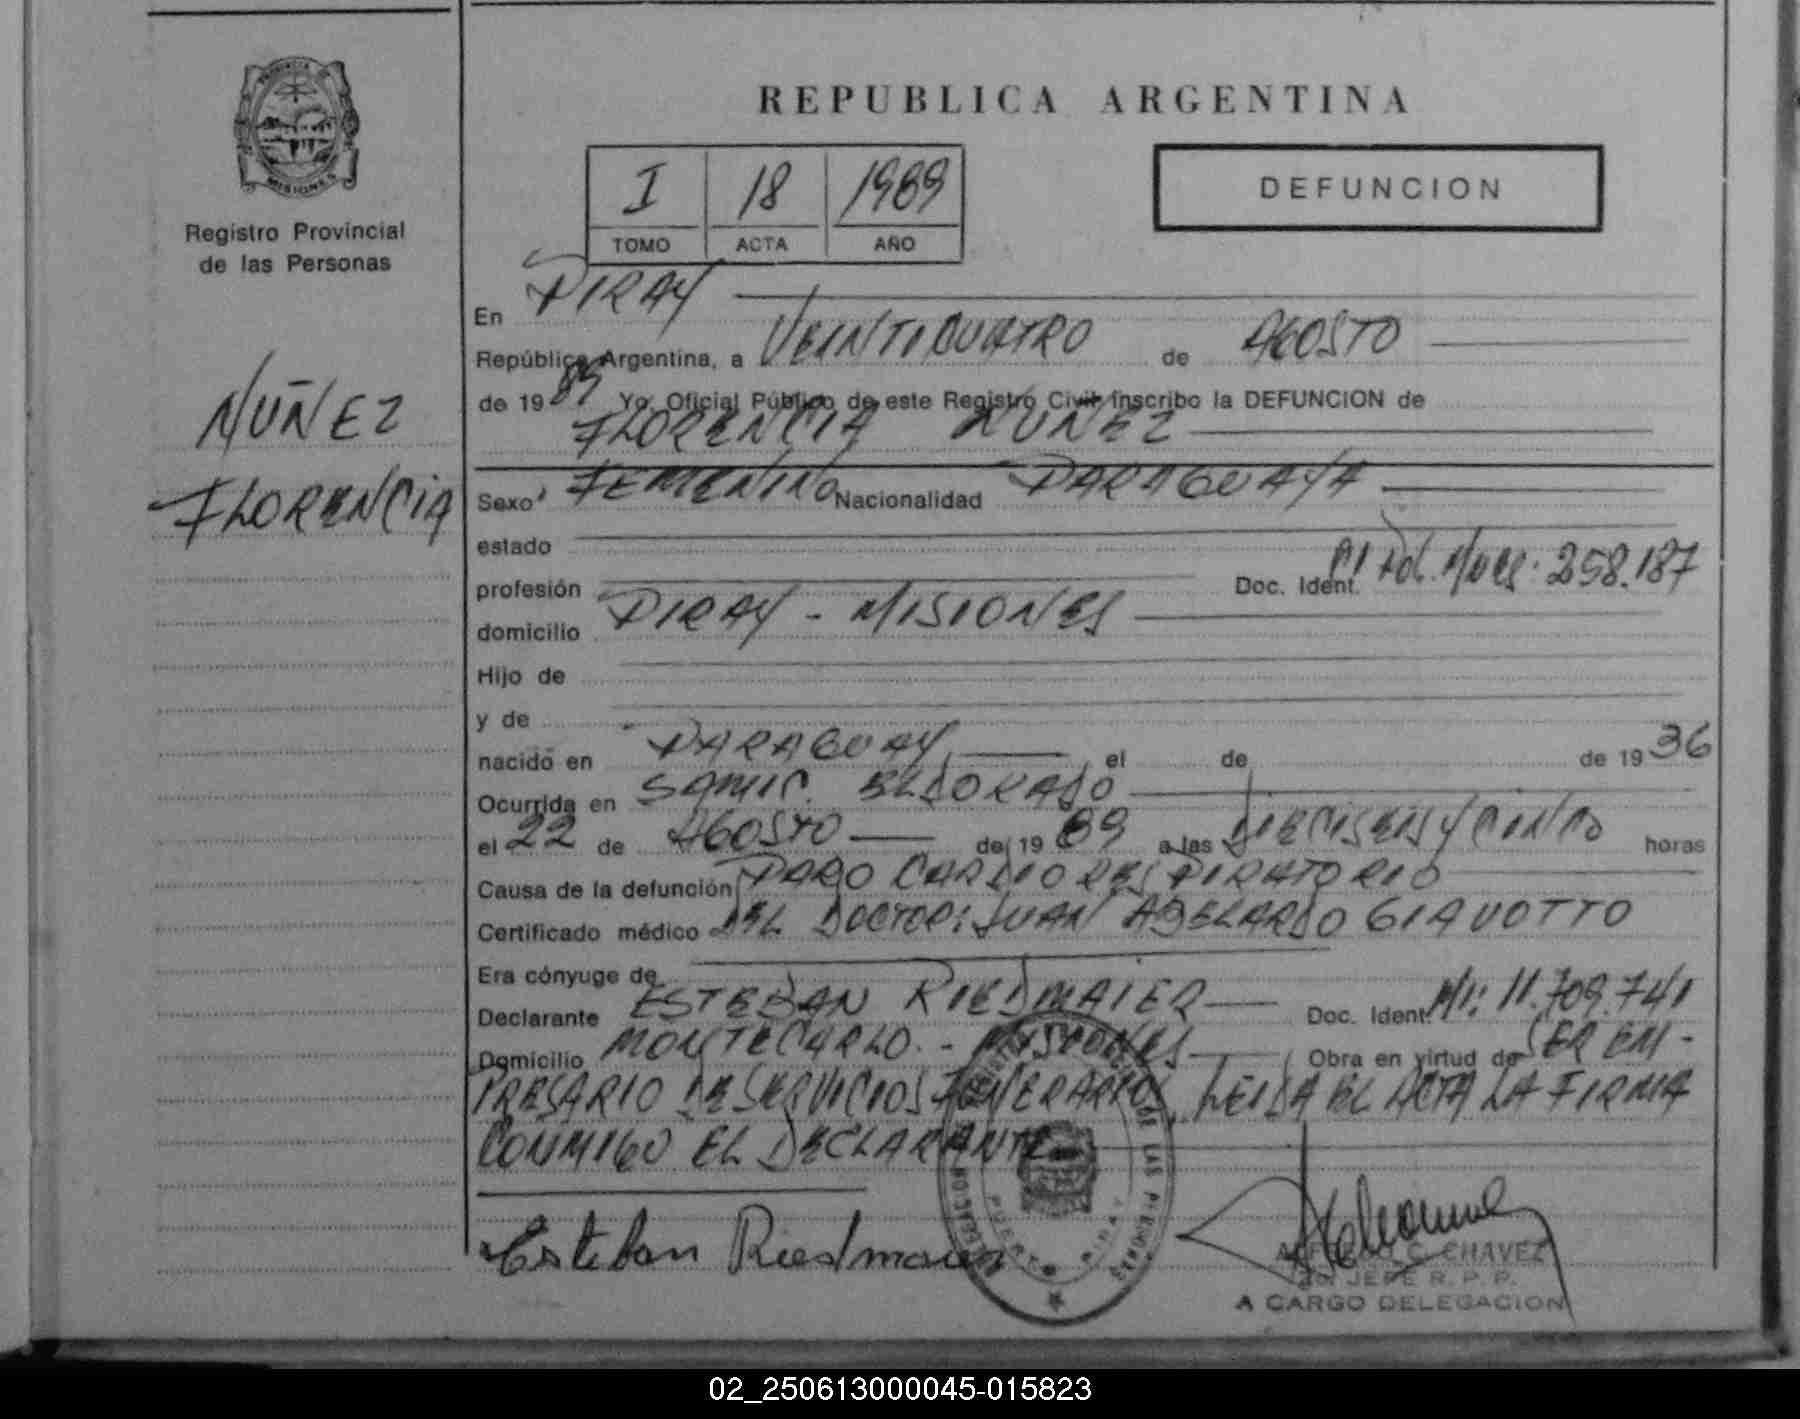 PROVINCIA DE
MISIONES
Registro Provincial
de las Personas
NUÑEZ
FLORENCIA
REPUBLICA ARGENTINA
I 18 1989
TOMO ACTA AÑO
DEFUNCION
En PIRAY
República Argentina, a VEINTICUATRO de AGOSTO
de 1989 Yo, Oficial Público de este Registro Civil, inscribo la DEFUNCION de
FLORENCIA NUÑEZ
Sexo FEMENINO Nacionalidad PARAGUAYA
estado
profesión Doc. Ident. CI Pol. Mnes: 258.187
domicilio PIRAY - MISIONES
Hijo de
y de
nacido en PARAGUAY el de de 1936
Ocurrida en SAMIC. ELDORADO
el 22 de AGOSTO de 1989 a las DIECISEIS Y CINCO horas
Causa de la defunción PARO CARDIO RESPIRATORIO
Certificado médico DEL DOCTOR: JUAN ABELARDO GIAVOTTO
Era cónyuge de
Declarante ESTEBAN RIEDMAIER Doc. Ident. MI: 11.709.741
Domicilio MONTECARLO. - MISIONES Obra en virtud de SER EM-
PRESARIO DE SERVICIOS FUNERARIOS, LEIDA EL ACTA LA FIRMA
CONMIGO EL DECLARANTE
Esteban Riedmaier
DELEGACION PUERTO PIRAY
DE LAS PERSONAS
ALFREDO C. CHAVEZ
JEFE R. P. P.
A CARGO DELEGACION
02_250613000045-015823